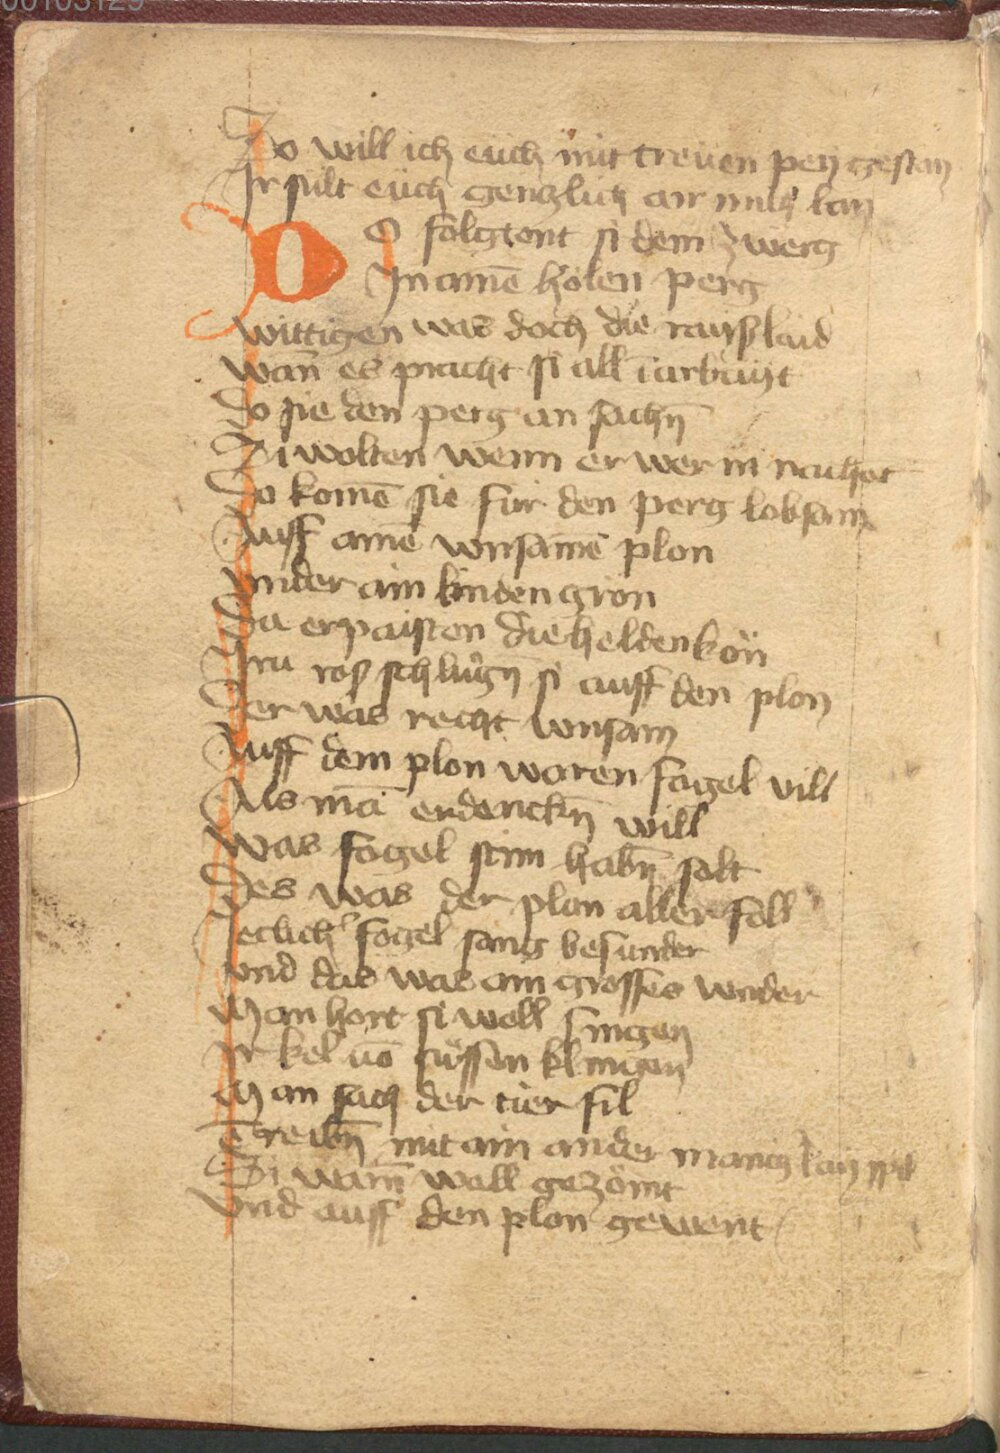 00103129
So will ich euch mit treuen pey gestan
Ir sult euch genczlich an mich lan
DO folgtent si dem zwerg
In ainē holen perg
wittigen was doch die rayß laid
wan̄ es pracht si all in arbayt
Do sie den perg an sachn̄
Si wolten wenn er wer in nachet
Do komē sie für den perg lobsam
Auff ainē wnsamē plon
Vnder ain linden gron
Da erpaisten die helden kön
Iru roß schlugn̄ si auff den plon
Der was recht wnsam
Auff dem plon waren fogel vill
Als mā erdenckn̄ will
Was fogel stim habn̄ solt
Des was der plon aller foll
Ieclich fogel sang besunder
Vnd das was ain grosses wnder
Man hort si woll singen
Ir kel vō süssen klingen
Man sach der tier fil
Treibn̄ mit ain ander manig lay spil
Si warn̄ woll gezömt
Vnd auff den plon gewent